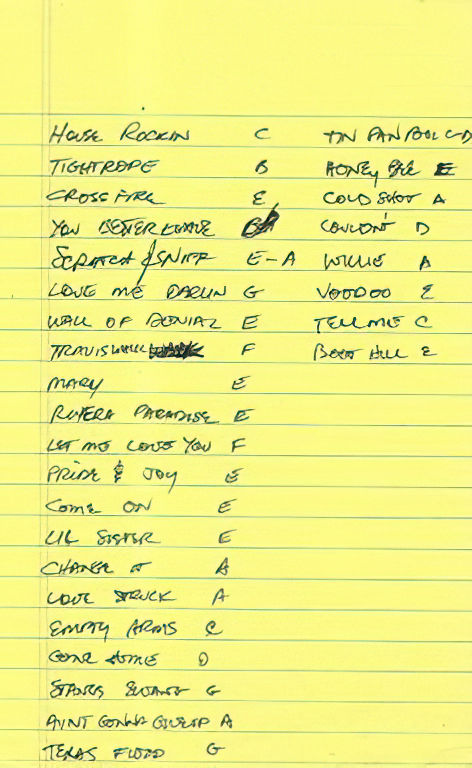 HOUSE ROCKIN C
TIGHTROPE B
CROSSFIRE E
YOU BETTER LEAVE
SCRATCH & SNIFF E-A
LOVE ME DARLIN G
WALL OF DENIAL E
TRAVIS WALK F
MARY E
RIVERA PARADISE E
LET ME LOVE YOU F
PRIDE & JOY E
COME ON E
LIL SISTER E
CHANGE IT A
LOVE STRUCK A
EMPTY ARMS C
GONE HOME D
STANGS SWANG G
AINT GONNA GIVEUP A
TEXAS FLOOD G
TIN PAN ALLEY
HONEY BEE E
COLD SHOT A
COULDN'T D
WILLIE A
VOODOO E
TELL ME C
BOOT HILL E